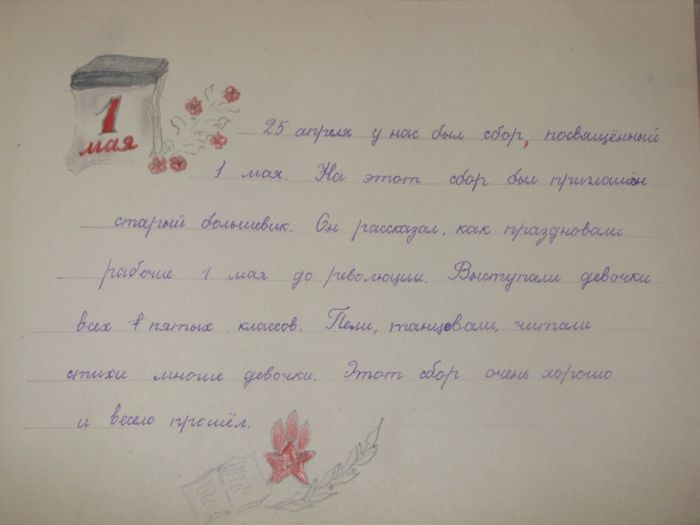 1
мая
25 апреля у нас был сбор, посвящённый
1 мая. На этот сбор был приглашён
старый большевик. Он рассказал, как праздновали
рабочие 1 мая до революции. Выступали девочки
всех пятых классов. Пели, танцевали, читали
стихи многие девочки. Этот сбор очень хорошо
и весело прошёл.